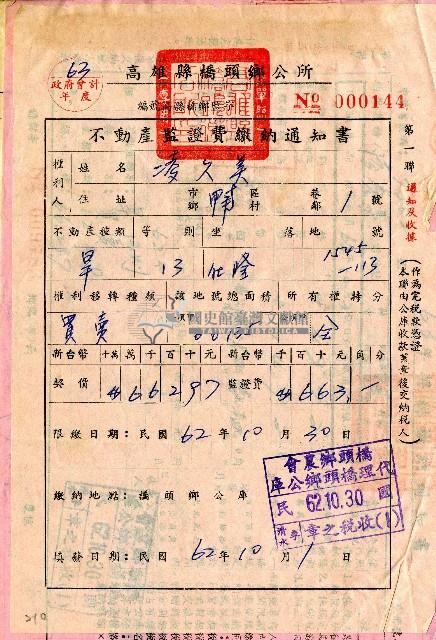 63
政府會計
年度
高雄縣橋頭鄉公所
No 000144
不動產監證費繳納通知書
權利人 姓名 凌久美
住址 市鄉 區村 巷鄰 1 號
不動產種類 等則 坐落 地號
旱 13 仕隆 1545-113
權利移轉種類 該地號總面積 所有權持分
買賣 0.0135 全
國史館臺灣文獻館
TAIWAN HISTORICA
新台幣 十萬 萬 千 百 十 元 新台幣 千 百 十 元 角 分
契價 66297 監證費 663.一
限繳日期:民國 62 年 10 月 30 日
繳納地點:橋頭鄉公庫
填發日期:民國 62 年 10 月 1 日
橋頭鄉農會
代理橋頭鄉公庫
民國 62.10.30
收稅之章(1)
第一聯 通知及收據
(作為完稅款憑證
本聯由公庫收款蓋章後交納稅人)